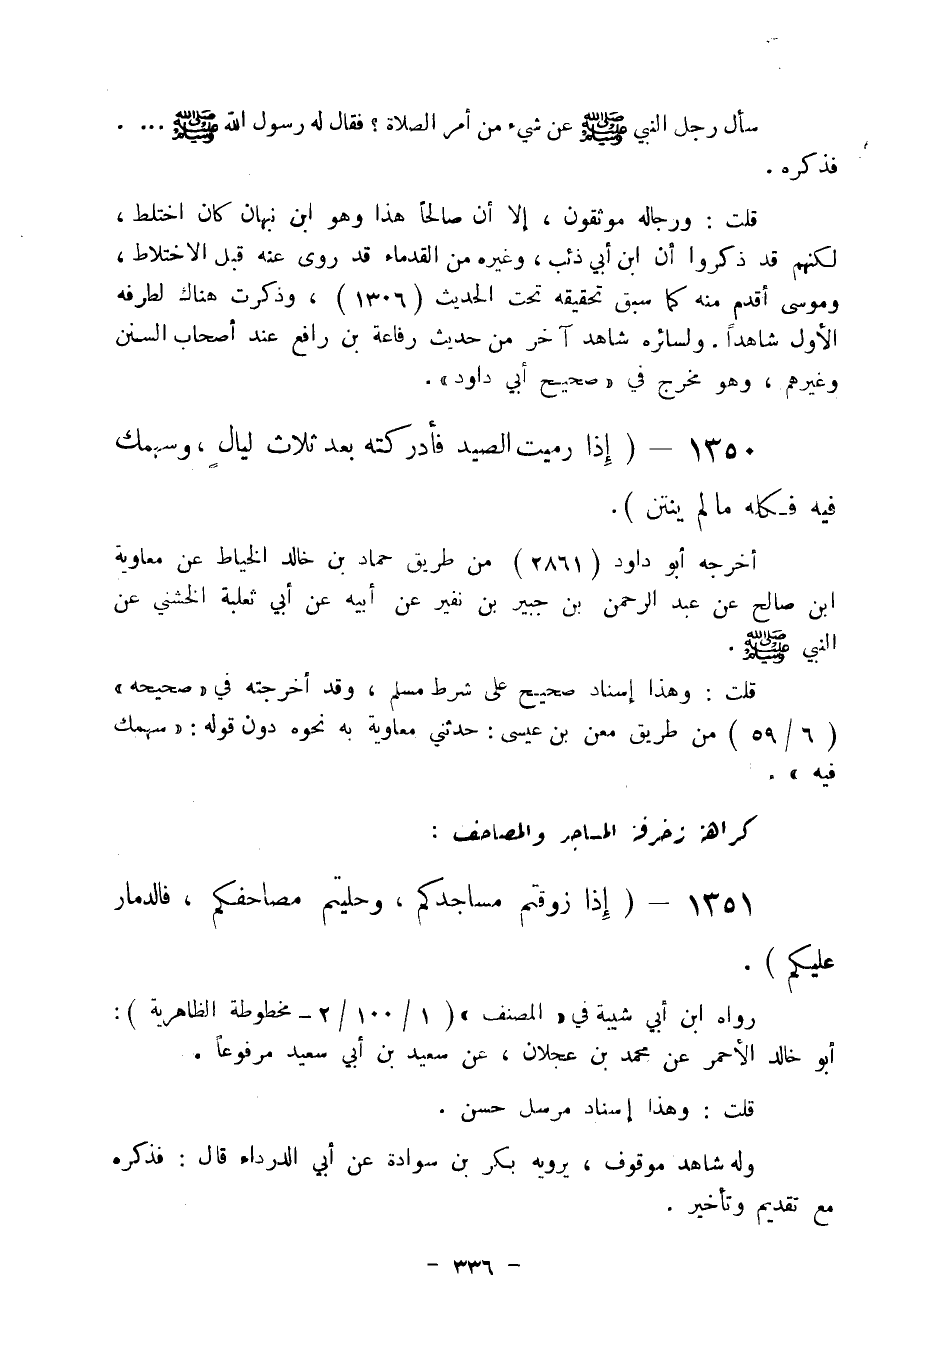 سأل رجل النبي ﷺ عن شيء من أمر الصلاة ؟ فقال له رسول الله ﷺ ... .
فذكره .
قلت : ورجاله موثقون ، إلا أن صالحاً هذا وهو ابن نبهان كان اختلط ،
لكنهم قد ذكروا أن ابن أبي ذئب ، وغيره من القدماء قد روى عنه قبل الاختلاط ،
وموسى أقدم منه كما سبق تحقيقه تحت الحديث ( ١٣٠٦ ) ، وذكرت هناك لطرفه
الأول شاهداً . ولسائره شاهد آخر من حديث رفاعة بن رافع عند أصحاب السنن
وغيرهم ، وهو مخرج في « صحيح أبي داود» .
١٣٥٠ – ( إذا رميت الصيد فأدركته بعد ثلاث ليالٍ ، وسهمك
فيه فكله ما لم ينتن ) .
أخرجه أبو داود ( ٢٨٦١ ) من طريق حماد بن خالد الخياط عن معاوية
ابن صالح عن عبد الرحمن بن جبير بن نفير عن أبيه عن أبي ثعلبة الخشني عن
النبي ﷺ .
قلت : وهذا إسناد صحيح على شرط مسلم ، وقد أخرجته في « صحيحه »
( ٦ / ٥٩ ) من طريق معن بن عيسى : حدثني معاوية به نحوه دون قوله : « سهمك
فيه » .
كراهة زخرفة المساجد والمصاحف :
١٣٥١ – ( إذا زوقتم مساجدكم ، وحليتم مصاحفكم ، فالدمار
عليكم ) .
رواه ابن أبي شيبة في « المصنف » ( ١ / ١٠٠ / ٢ – مخطوطة الظاهرية ) :
أبو خالد الأحمر عن محمد بن عجلان ، عن سعيد بن أبي سعيد مرفوعاً .
قلت : وهذا إسناد مرسل حسن .
وله شاهد موقوف ، يرويه بكر بن سوادة عن أبي الدرداء قال : فذكره
مع تقديم وتأخير .
- ٣٣٦ -